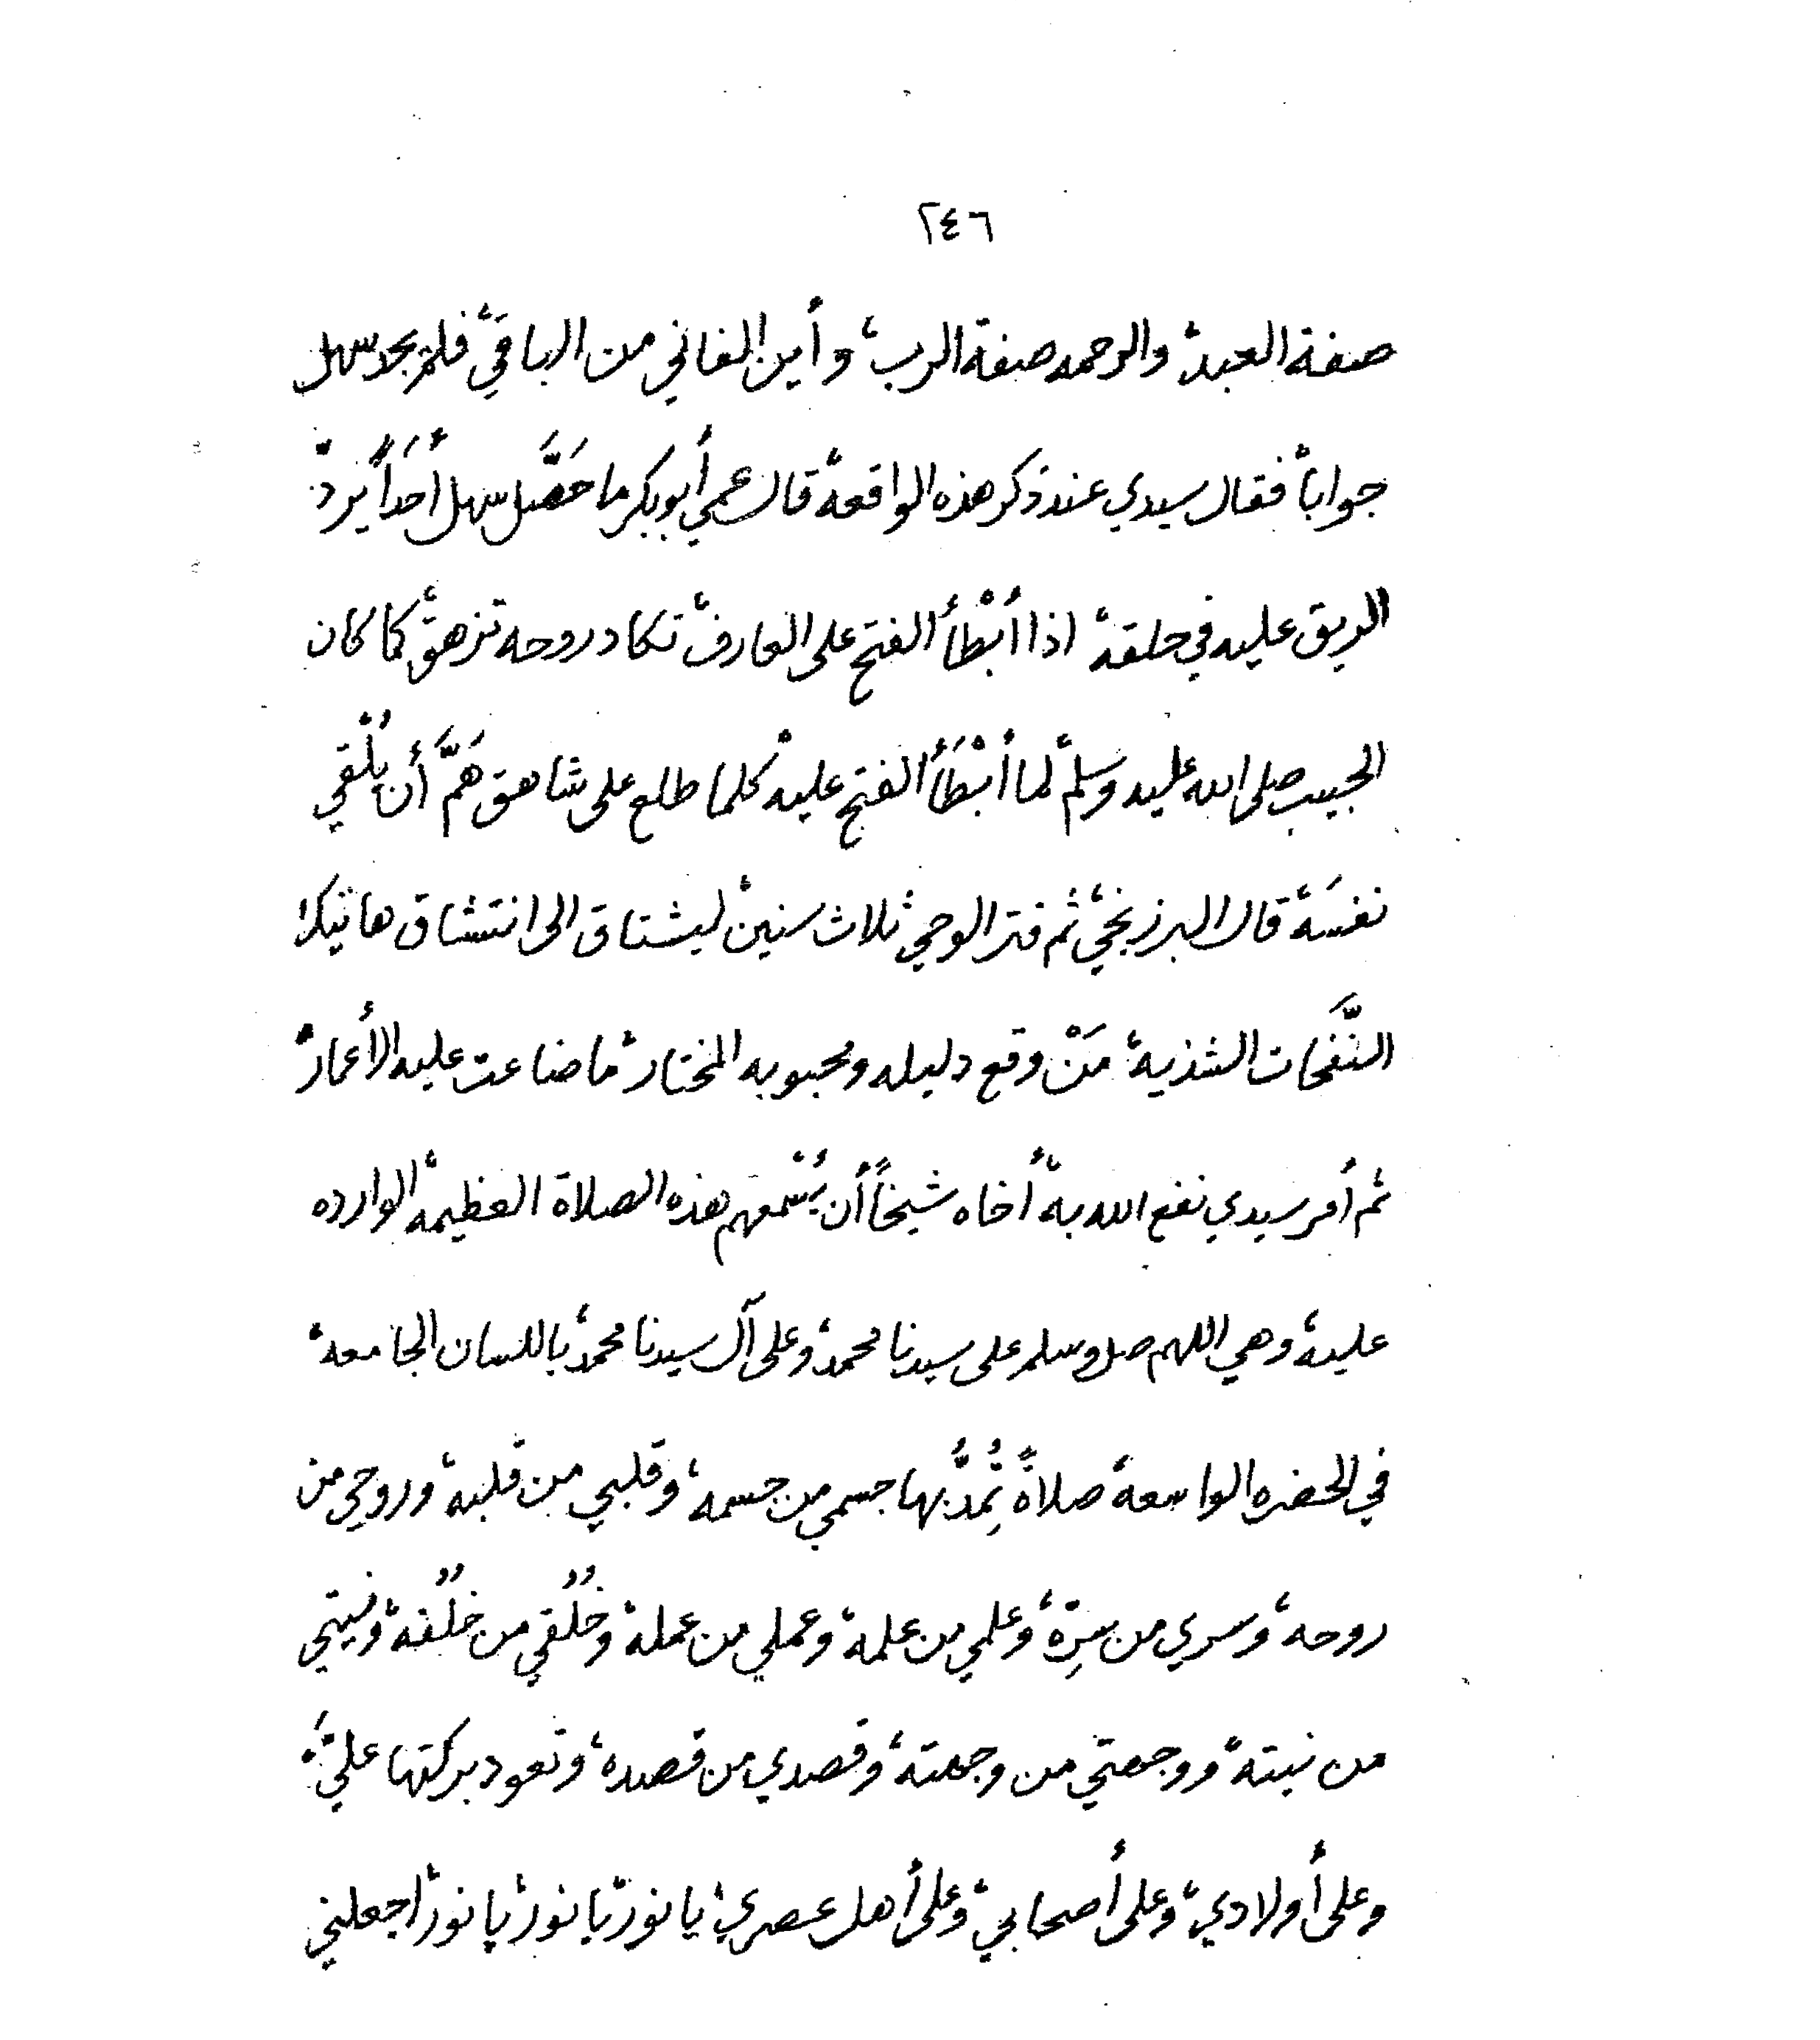 ٢٤٦
صفة العبد، والرحمه صفة الرب، وأين الفاني من الباقي، فلم يجد سهل
جواباً، فقال سيدي عند ذكر هذه الواقعة، قال عمي أبوبكر ما حَصَّل سهل أَحَداً يردّ
الريق عليه في حلقه، اذا أَبْطأَ الفتح على العارف، تكاد روحه تزهق، كما كان
الحبيب صلى الله عليه وسلم، لما أَبْطَأَ الفتح عليه، كلما طلع على شاهق هَمَّ أن يُلْقي
نفسَه، قال البرزنجي، ثم فتر الوحي ثلاث سنين، ليشتاق الى انتشاق هاتيك
النَّفحات الشذيه، مَنْ وقع دليله ومحبوبه المختار، ما ضاعت عليه الأعمار،
ثم أمر سيدي نفع الله به، أخاه شيخاً أن يُسْمعهم هذه الصلاة العظيمه، الوارده
عليه، وهي اللهم صل وسلم على سيدنا محمد، وعلى آل سيدنا محمد، باللسان الجامعه،
في الحضره الواسعه، صلاةً تُمِدُّ بها جسمي من جسمه، وقلبي من قلبه، وروحي من
روحه، وسري من سِرّه، وعلمي من علمه، وعملي من عمله، وخُلُقي من خُلُقه، ونيتي
من نيته، ووجهتي من وجهته، وقصدي من قصده، وتعود بركتها عليَّ،
وعلى أولادي، وعلى أصحابي، وعلى أهل عصري، يا نور، يا نور، يا نور، اجعلني